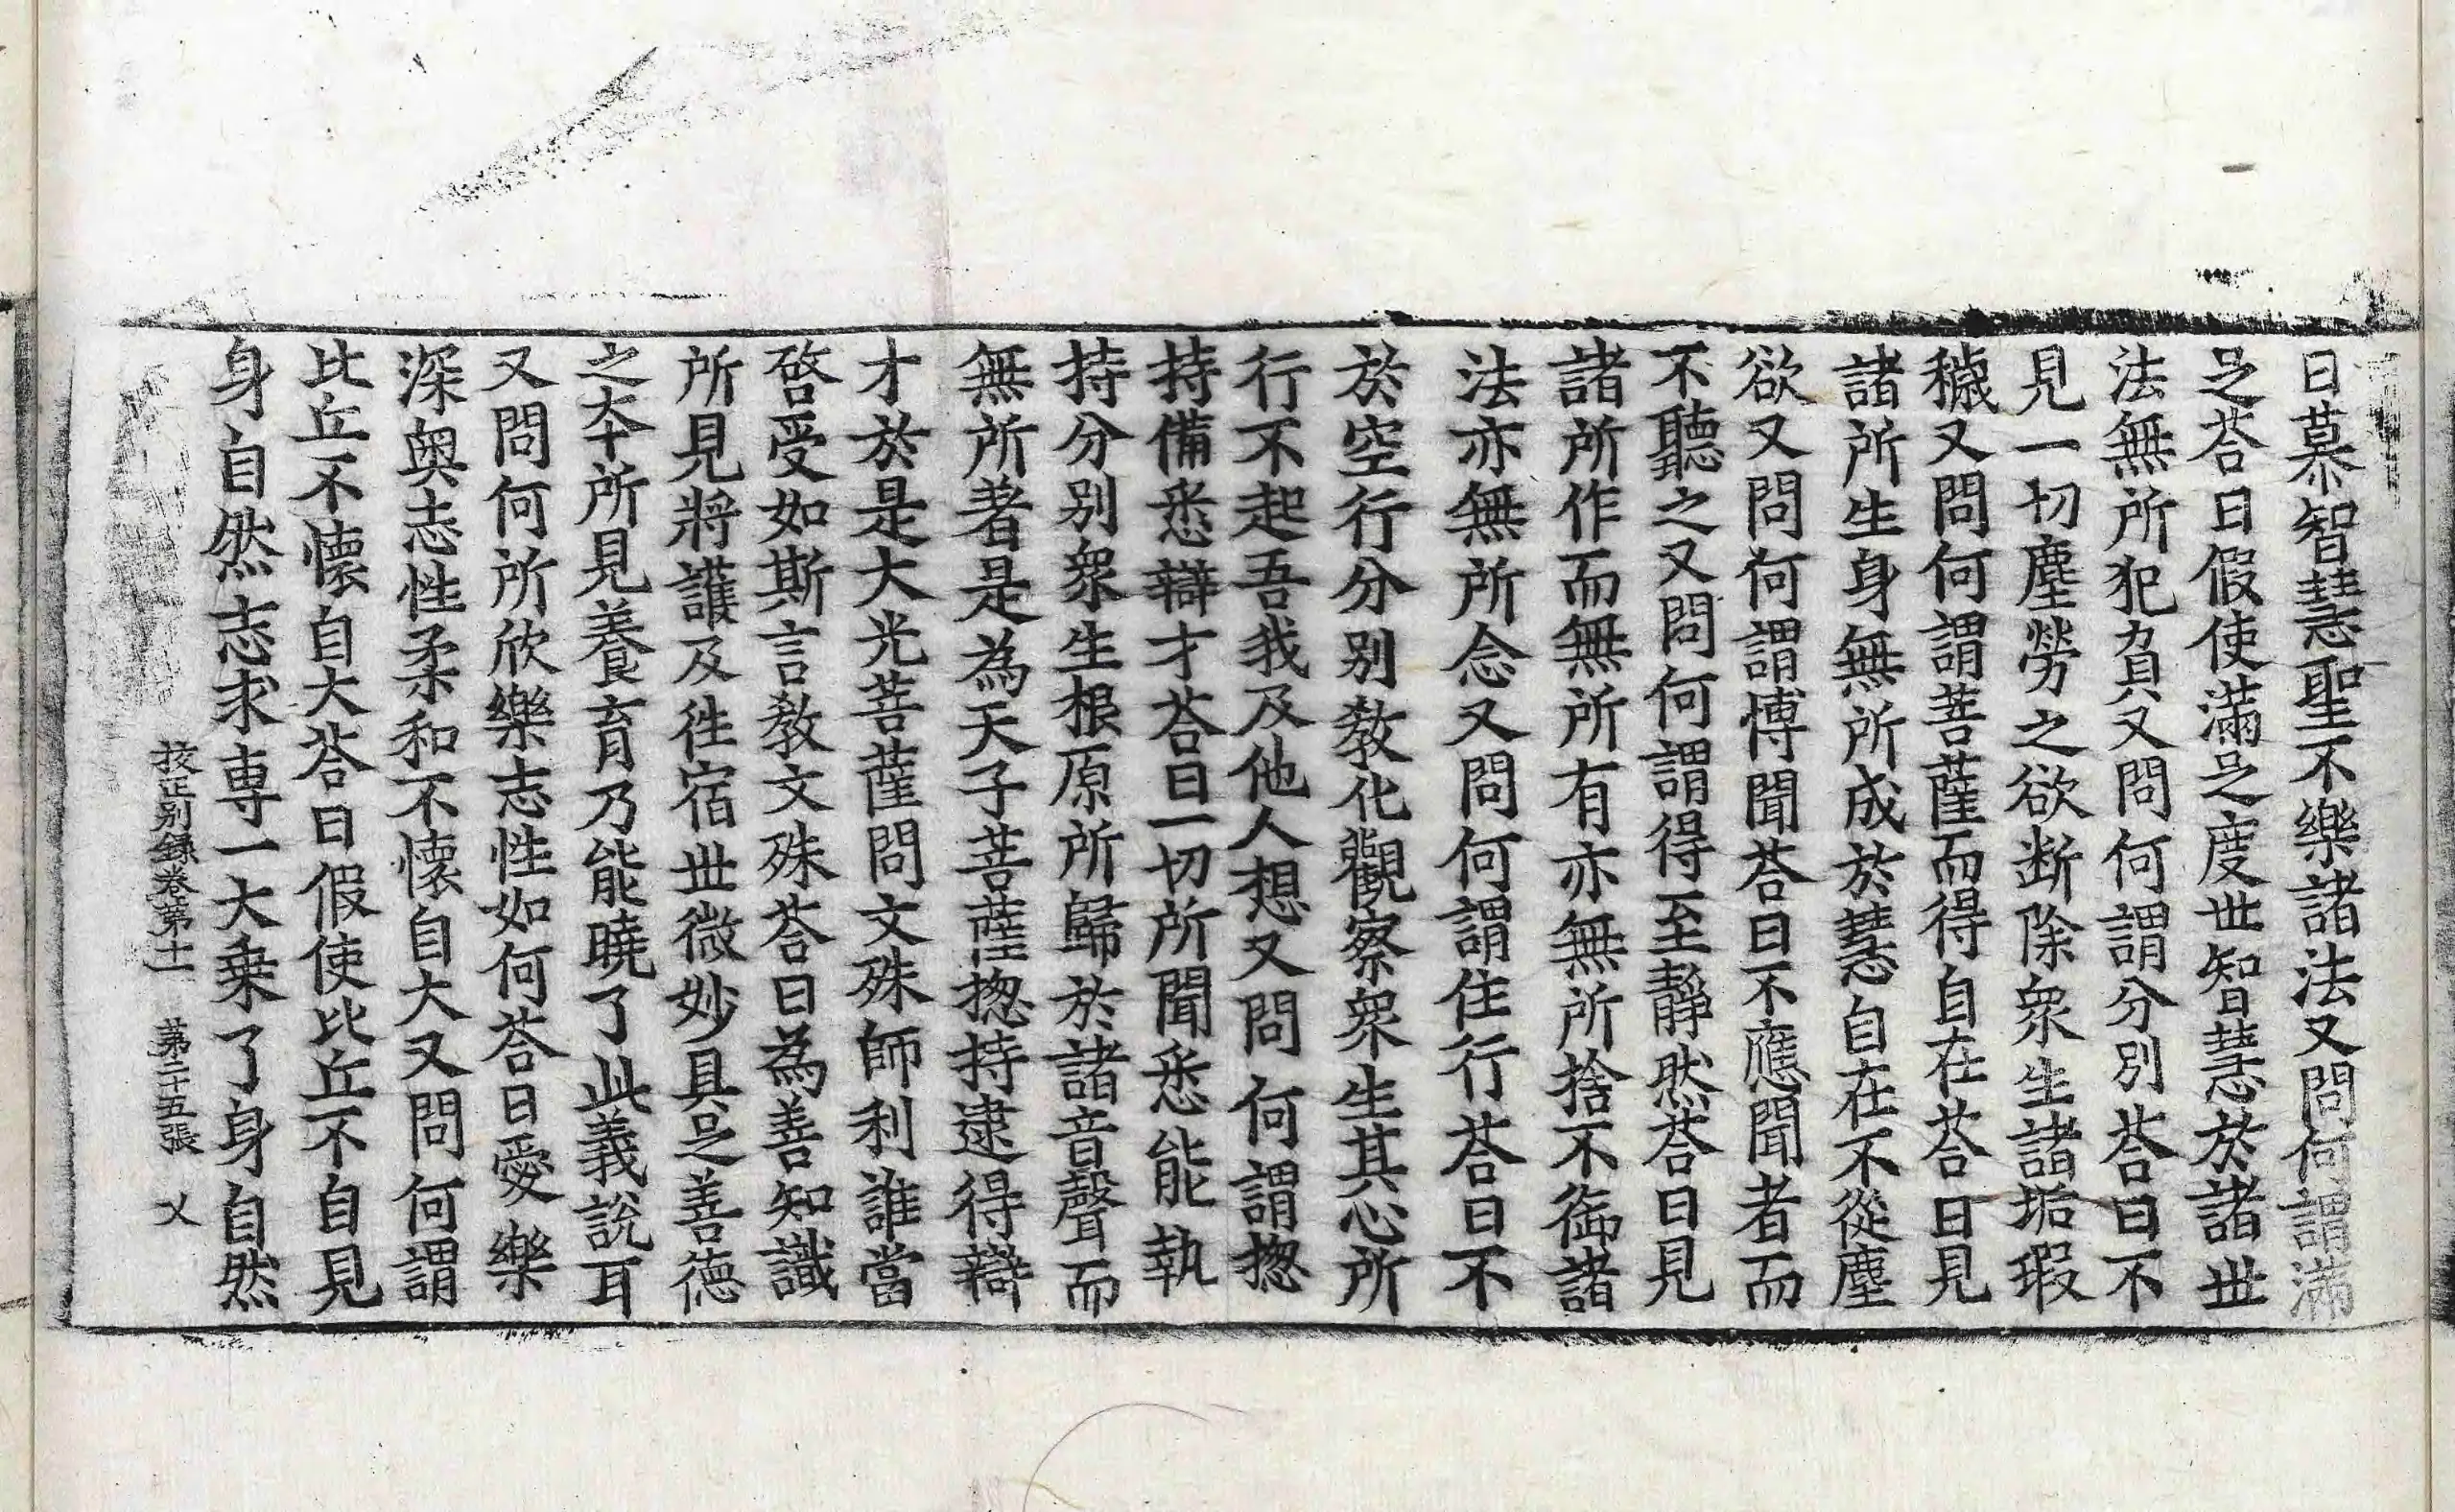 曰慕智慧聖不樂諸法又問何謂滿
足荅曰假使滿足之度世智慧於諸世
法無所犯負又問何謂分別荅曰不
見一切塵勞之欲断除衆生諸垢瑕
穢又問何謂菩薩而得自在荅曰見
諸所生身無所成於慧自在不從塵
欲又問何謂博聞荅曰不應聞者而
不聽之又問何謂得至静然荅曰見
諸所作而無所有亦無所捨不御諸
法亦無所念又問何謂住行荅曰不
於空行分别教化觀察衆生其心所
行不起吾我及他人想又問何謂揔
持備悉辯才荅曰一切所聞悉能執
持分别衆生根原所歸於諸音聲而
無所著是為天子菩薩揔持逮得辯
才於是大光菩薩問文殊師利誰當
啓受如斯言教文殊荅曰為善知識
所見將護及徃宿世微妙具足善德
之夲所見養育乃能曉了此義說耳
又問何所欣樂志性如何荅曰愛樂
深奥志性柔和不懷自大又問何謂
比丘不懷自大荅曰假使比丘不自見
身自然志求専一大乗了身自然
校正别錄卷第十一 第二十五張 乂